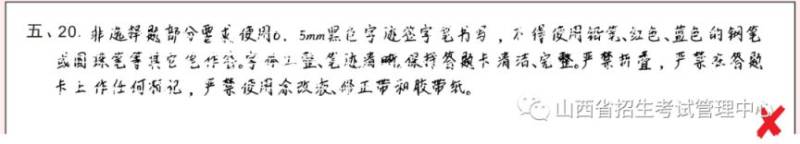 五、20. 非选择题部分要求使用0.5mm黑色字迹签字笔书写，不得使用铅笔、红色、蓝色的钢笔
或圆珠笔等其它笔作答。字体工整、笔迹清晰。保持答题卡清洁、完整。严禁折叠，严禁在答题
卡上作任何标记，严禁使用涂改液、修正带和胶带纸。
山西省招生考试管理中心